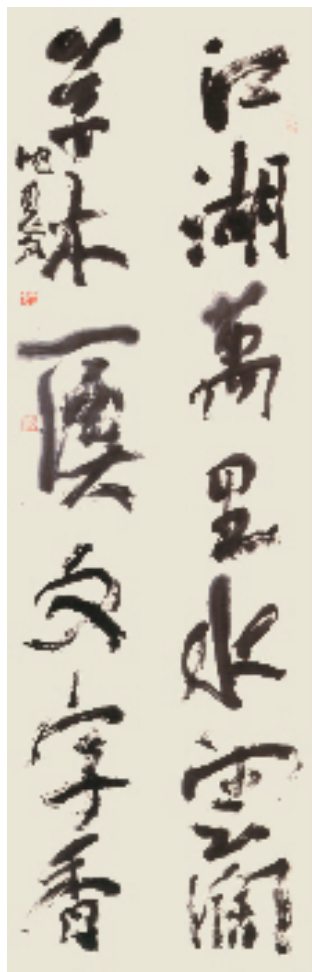 江湖萬里水雲闊
草木一溪文字香